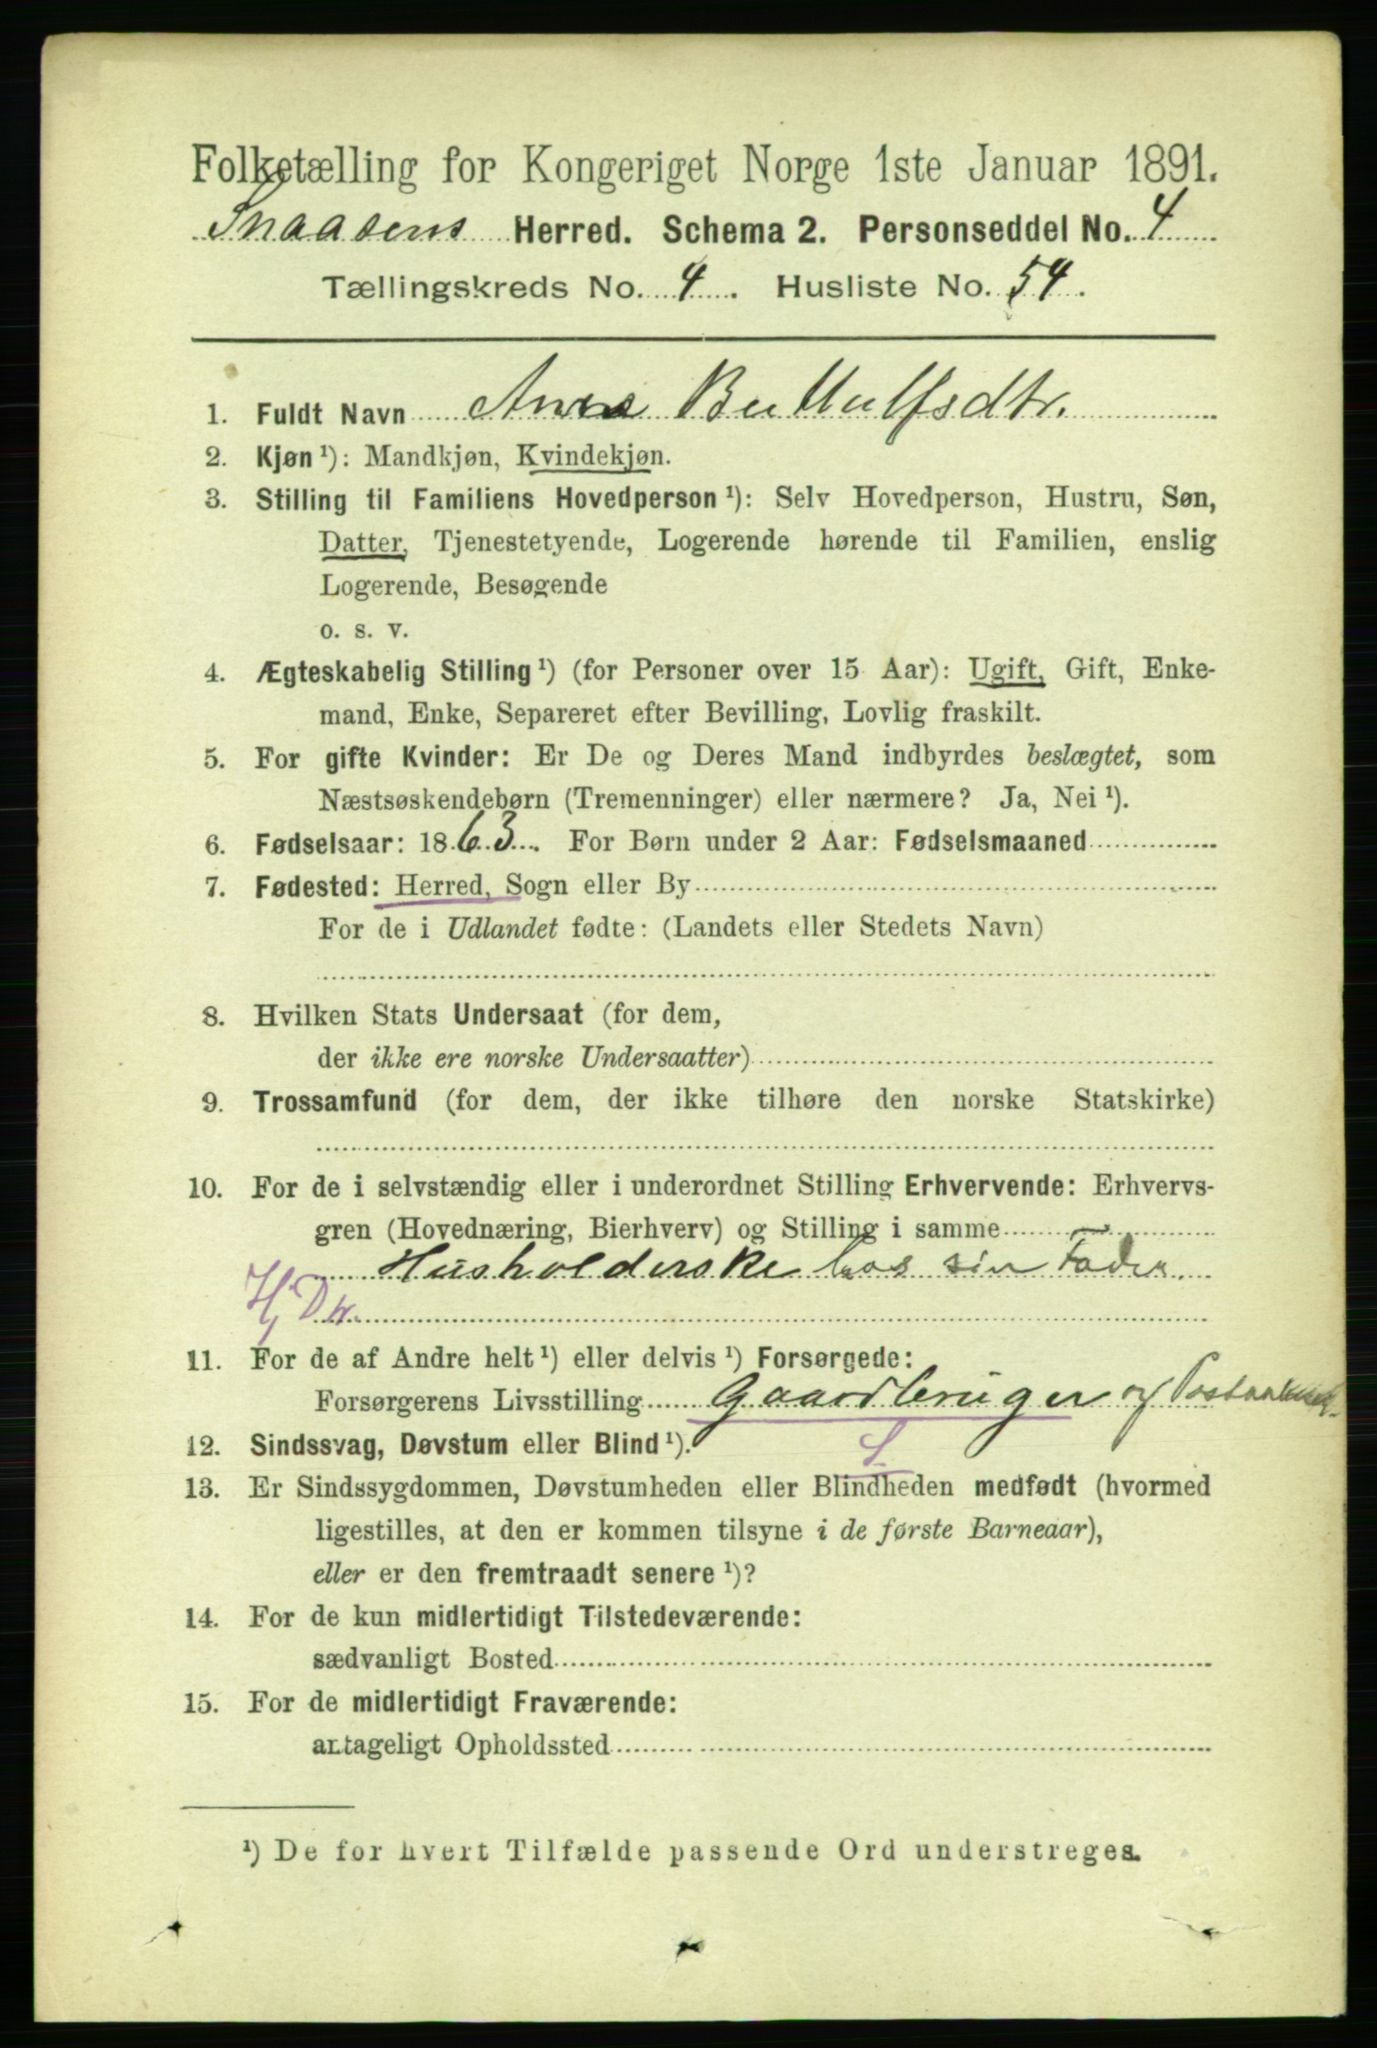 Folketælling for Kongeriget Norge 1ste Januar 1891.
Snaasens Herred. Schema 2. Personseddel No. 4
Tællingskreds No. 4. Husliste No. 54.
1. Fuldt Navn Anna Buttulfsdtr.
2. Kjøn ¹): Mandkjøn, Kvindekjøn.
3. Stilling til Familiens Hovedperson ¹): Selv Hovedperson, Hustru, Søn,
Datter, Tjenestetyende, Logerende hørende til Familien, enslig
Logerende, Besøgende
o. s. v.
4. Ægteskabelig Stilling ¹) (for Personer over 15 Aar): Ugift, Gift, Enke-
mand, Enke, Separeret efter Bevilling, Lovlig fraskilt.
5. For gifte Kvinder: Er De og Deres Mand indbyrdes beslægtet, som
Næstsøskendebørn (Tremenninger) eller nærmere? Ja, Nei ¹).
6. Fødselsaar: 1863. For Børn under 2 Aar: Fødselsmaaned
7. Fødested: Herred, Sogn eller By
For de i Udlandet fødte: (Landets eller Stedets Navn)
8. Hvilken Stats Undersaat (for dem,
der ikke ere norske Undersaatter)
9. Trossamfund (for dem, der ikke tilhøre den norske Statskirke)
10. For de i selvstændig eller i underordnet Stilling Erhvervende: Erhvervs-
gren (Hovednæring, Bierhverv) og Stilling i samme
Husholderske hos sin Fader.
11. For de af Andre helt ¹) eller delvis ¹) Forsørgede:
Forsørgerens Livsstilling Gaardbruger og
12. Sindssvag, Døvstum eller Blind ¹).
13. Er Sindssygdommen, Døvstumheden eller Blindheden medfødt (hvormed
ligestilles, at den er kommen tilsyne i de første Barneaar),
eller er den fremtraadt senere ¹)?
14. For de kun midlertidigt Tilstedeværende:
sædvanligt Bosted
15. For de midlertidigt Fraværende:
antageligt Opholdssted
¹) De for hvert Tilfælde passende Ord understreges.